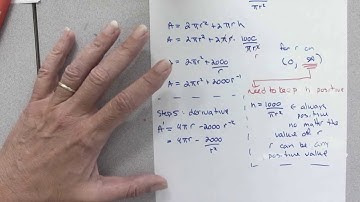 πr²
A = 2πr² + 2πr h
A = 2πr² + 2πr · 1000
πr²
r
= 2πr² + 2000
r
A = 2πr² + 2000 r⁻¹
for r on
(0, ∞)
Need to keep h positive
h = 1000
πr²
← always
positive
no matter the
value of r
r can be any
positive value
Step 5: derivative
A' = 4πr - 2000 r⁻²
= 4πr - 2000
r²